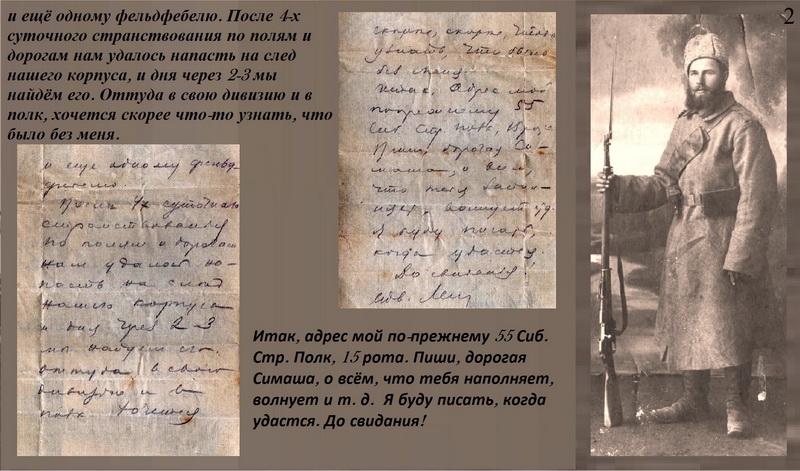 и ещё одному фельдфебелю. После 4-х
суточного странствования по полям и
дорогам нам удалось напасть на след
нашего корпуса, и дня через 2-3 мы
найдём его. Оттуда в свою дивизию и в
полк, хочется скорее что-то узнать, что
было без меня.
и еще одному фельд
фебелю.
После 4х суточного
странствования
по полям и дорогам
нам удалось на-
пасть на след
нашего корпуса
и дня через 2-3
мы найдем его.
оттуда в свою
дивизию и в
полк. Хочется
скорее, скорее, что-то
узнать, что было
без меня.
Итак, Адрес мой
попрежнему 55
Сиб. Стр. полк, 15 рота
Пиши, дорогая Си-
маша, о всем,
что тебя
волнует
Я буду писать,
когда удастся.
До свиданья!
Итак, адрес мой по-прежнему 55 Сиб.
Стр. Полк, 15 рота. Пиши, дорогая
Симаша, о всём, что тебя наполняет,
волнует и т. д. Я буду писать, когда
удастся. До свидания!
2